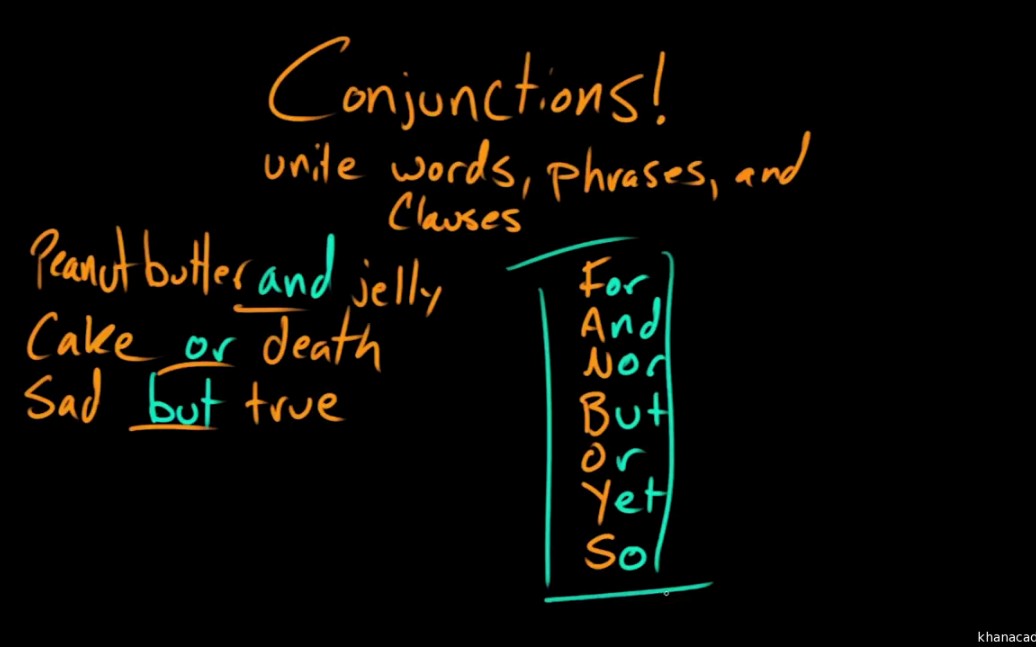 Conjunctions!
unite words, phrases, and
Clauses
Peanut butter and jelly
Cake or death
Sad but true
For
And
Nor
But
Or
Yet
So
khanacad